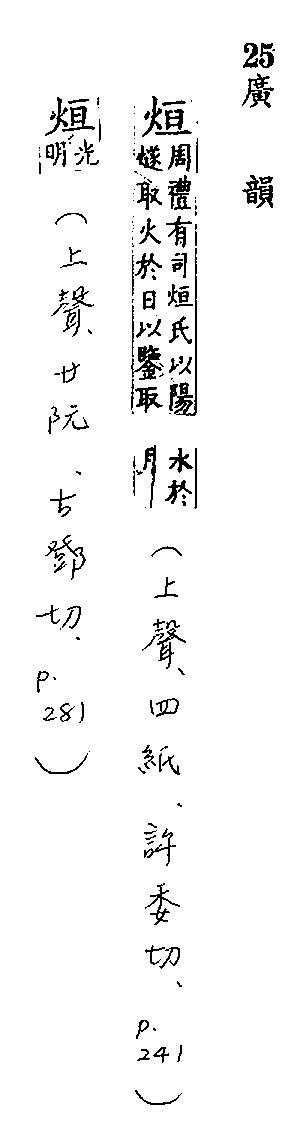 25廣韻
烜周禮有司烜氏以陽燧取火於日以鑒取水於月(上聲、四紙、許委切、p.241)
烜光明(上聲廿阮、古鄧切、p.281)